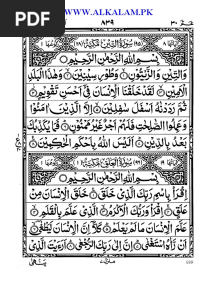 WWW.ALKALAM.PK
PDF
٨٣٩
سُوْرَةُ التِّيْنِ مَكِّيَّةٌ
بِسْمِ اللّٰهِ الرَّحْمٰنِ الرَّحِيْمِ
وَالتِّيْنِ وَالزَّيْتُوْنِ ۙ وَطُوْرِ سِيْنِيْنَ ۙ وَهٰذَا الْبَلَدِ
الْاَمِيْنِ ۙ لَقَدْ خَلَقْنَا الْاِنْسَانَ فِيْٓ اَحْسَنِ تَقْوِيْمٍ ۫
ثُمَّ رَدَدْنٰهُ اَسْفَلَ سٰفِلِيْنَ ۙ اِلَّا الَّذِيْنَ اٰمَنُوْا
وَعَمِلُوا الصّٰلِحٰتِ فَلَهُمْ اَجْرٌ غَيْرُ مَمْنُوْنٍ ؕ فَمَا يُكَذِّبُكَ
بَعْدُ بِالدِّيْنِ ؕ اَلَيْسَ اللّٰهُ بِاَحْكَمِ الْحٰكِمِيْنَ
سُوْرَةُ الْعَلَقِ مَكِّيَّةٌ
بِسْمِ اللّٰهِ الرَّحْمٰنِ الرَّحِيْمِ
اِقْرَاْ بِاسْمِ رَبِّكَ الَّذِيْ خَلَقَ ۚ خَلَقَ الْاِنْسَانَ مِنْ
عَلَقٍ ۚ اِقْرَاْ وَرَبُّكَ الْاَكْرَمُ ۙ الَّذِيْ عَلَّمَ بِالْقَلَمِ ۙ
عَلَّمَ الْاِنْسَانَ مَا لَمْ يَعْلَمْ ؕ كَلَّآ اِنَّ الْاِنْسَانَ لَيَطْغٰٓى ۙ
اَنْ رَّاٰهُ اسْتَغْنٰى ؕ اِنَّ اِلٰى رَبِّكَ الرُّجْعٰى ؕ اَرَءَيْتَ الَّذِيْ
يَنْهٰى